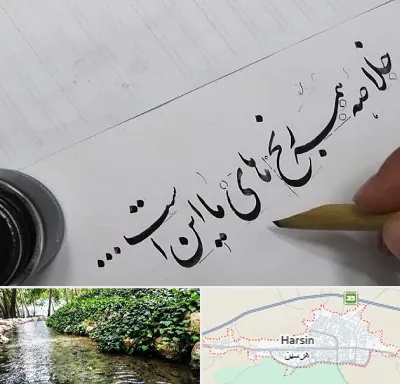 خلاصه همه رنج های ما این است...
Harsin
هرسین